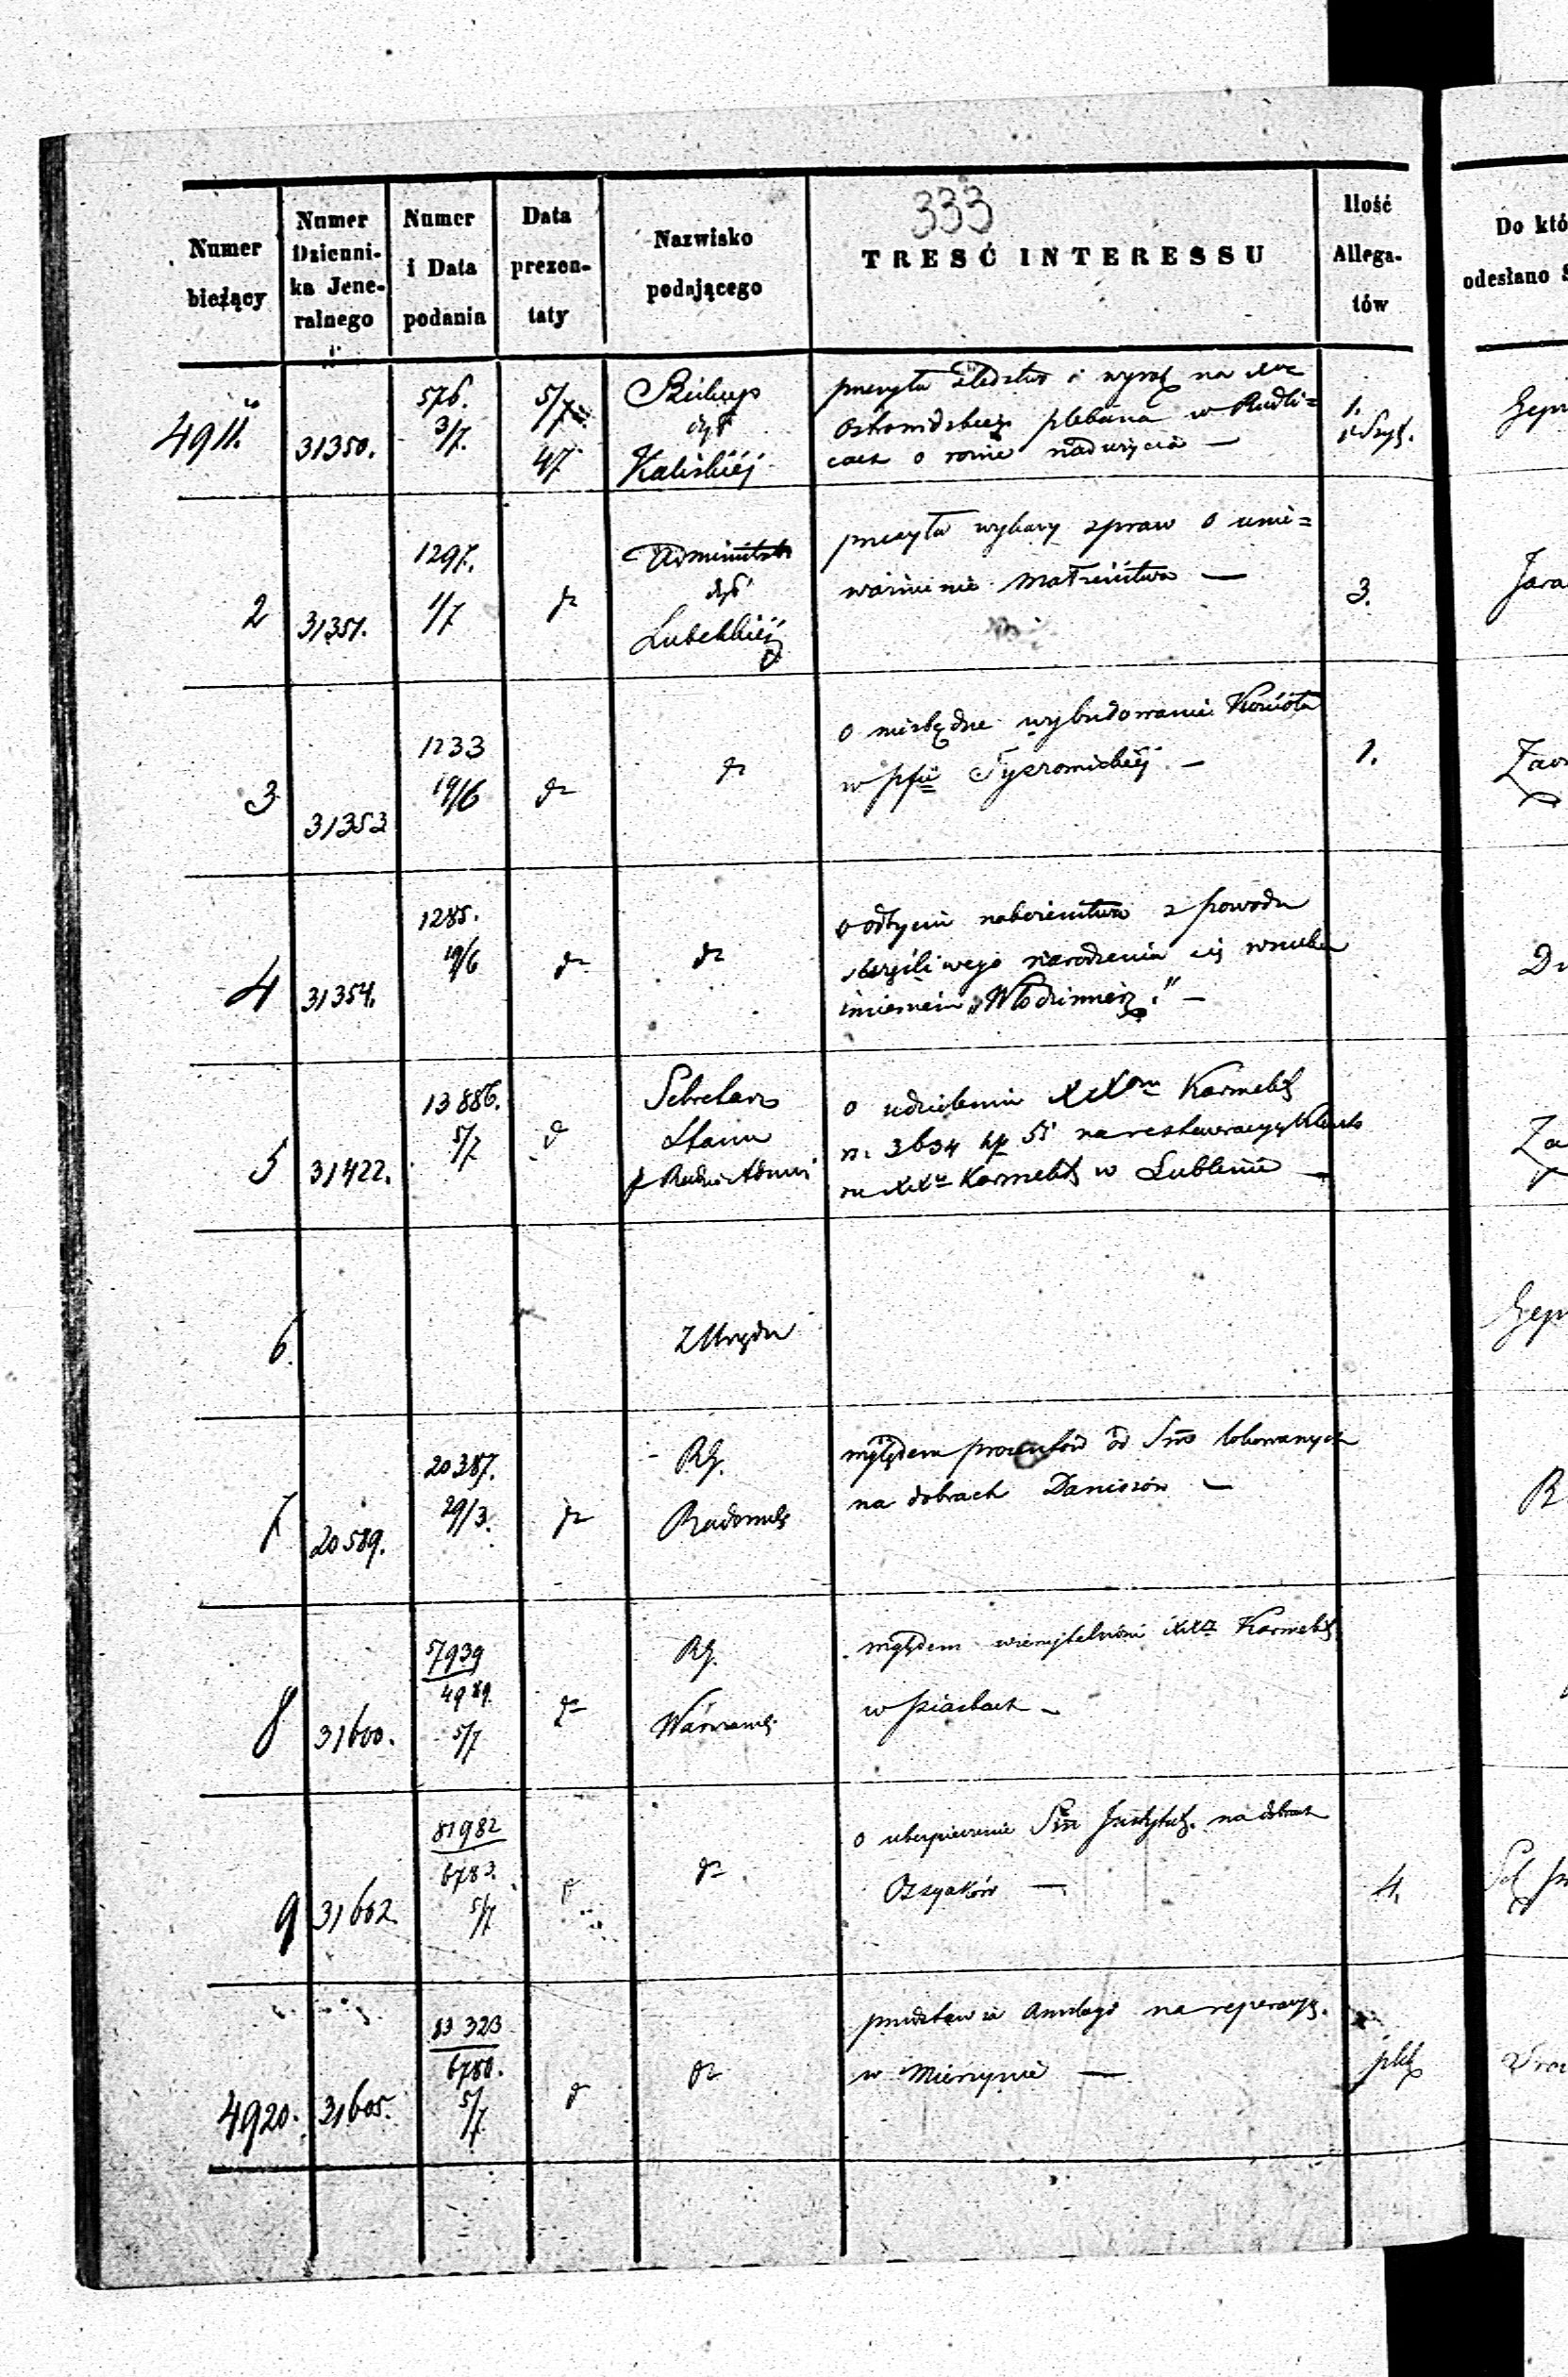 333
Numer bieżący
Numer Dzienni-ka Jene-ralnego
Numer i Data podania
Data prezen-taty
Nazwisko podającego
TRESĆ INTERESSU
Ilość Allega-tów
Do któ
odesłano S
4911. 31350. 576. 3/7. 5/7 47. Biskup dyć Kaliskiéj
przesyła śledztwo i wyrok na
plebana w Rudli=
cach o różne nadużycia —
1.
2 31351. 1297. 1/7 dr Administrator dyć Lubelskiéj
przesyła wykazy spraw o unie=
ważnienie małżeństwa —
3.
3 31353 1233 19/6 dr dr
o niezbędne wybudowanie Kościoła
w pfii —
1.
4 31354. 1285. 19/6 dr dr
o odbyciu nabożeństwa z powodu
szczęśliwego narodzenia się wnuka
imieniem „Włodzimierz." —
5 31422. 13886. 5/7 d Sekretarz Stanu
o udzieleniu XXom Karmelit
r. 3634 k 51 na restauracyę
XX Karmelit w Lublinie —
6. Z Urzędu
7 20589. 20387. 29/3. dr RG. Radomsk
względem procentów od Summ lokowanych
na dobrach Daniszów —
8 31600. 57939 4989. 5/7 dr RG. Warszawsk
względem wierzytelności XX Karmelit
w Piaskach —
9 31602. 81982 6783. 5/7 d dr
o ubezpieczenie Summ Instytut. na dobrach
Osyaków —
4.
4920. 31605. 83323 6780. 5/7 d dr
przedstawia Anszlag na reperacyę.
w Mierzynie —
plik